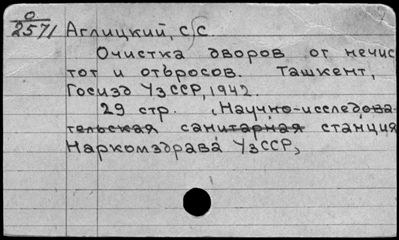 0
2571
Аглицкий, С/С.
Очистка дворов от нечис
тот и отбросов. Ташкент,
Госизд УзССР, 1942.
29 стр. (Научно-исследова
тельская санитарная станция
Наркомздрава УзССР,